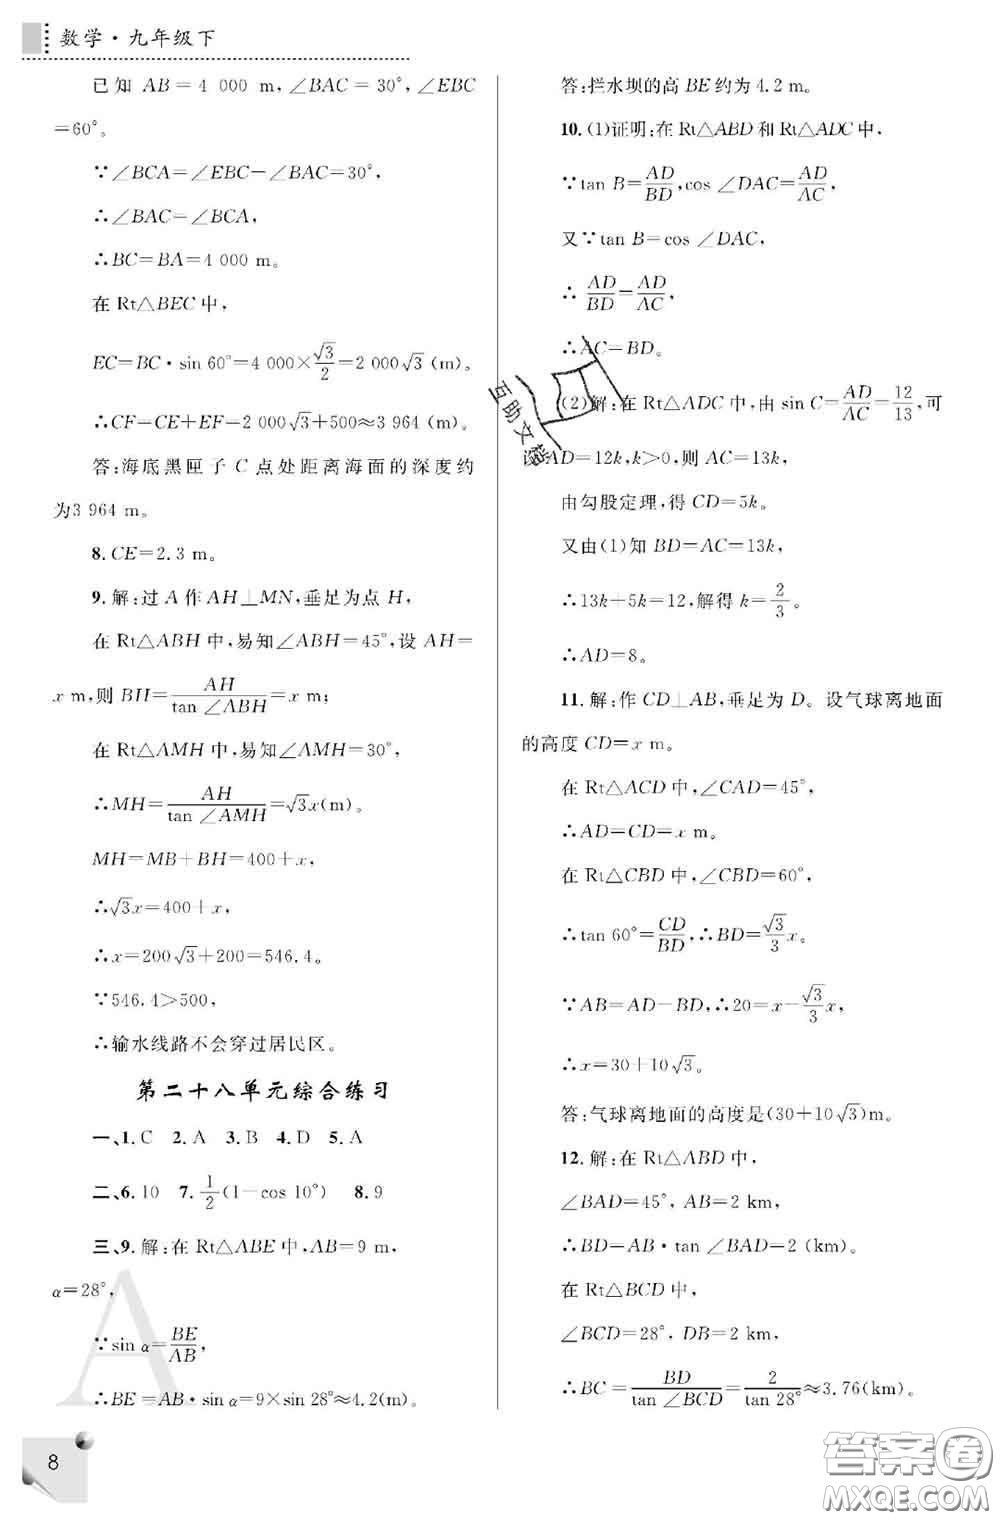 数学·九年级下
已知 AB=4 000 m,∠BAC=30°,∠EBC
=60°。
∵∠BCA=∠EBC-∠BAC=30°,
∴∠BAC=∠BCA,
∴BC=BA=4 000 m。
在 Rt△BEC 中,
EC=BC·sin 60°=4 000×√3/2=2 000√3(m)。
∴CF=CE+EF=2 000√3+500≈3 964(m)。
答:海底黑匣子 C 点处距离海面的深度约
为3 964 m。
8. CE=2.3 m。
9. 解:过 A 作 AH⊥MN,垂足为点 H,
在 Rt△ABH 中,易知∠ABH=45°,设 AH=
x m,则 BH=AH/tan∠ABH=x m;
在 Rt△AMH 中,易知∠AMH=30°,
∴MH=AH/tan∠AMH=√3x(m)。
MH=MB+BH=400+x,
∴√3x=400+x,
∴x=200√3+200=546.4。
∵546.4>500,
∴输水线路不会穿过居民区。
第二十八单元综合练习
一、1. C 2. A 3. B 4. D 5. A
二、6. 10 7. 1/2(1-cos 10°) 8. 9
三、9. 解:在 Rt△ABE 中,AB=9 m,
α=28°,
∵sin α=BE/AB,
∴BE=AB·sin α=9×sin 28°≈4.2(m)。
8
答:拦水坝的高 BE 约为 4.2 m。
10. (1)证明:在 Rt△ABD 和 Rt△ADC 中,
∵tan B=AD/BD,cos∠DAC=AD/AC,
又∵tan B=cos∠DAC,
∴AD/BD=AD/AC,
∴AC=BD。
(2)解:在 Rt△ADC 中,由 sin C=AD/AC=12/13,可
设 AD=12k,k>0,则 AC=13k,
由勾股定理,得 CD=5k。
又由(1)知 BD=AC=13k,
∴13k+5k=12,解得 k=2/3。
∴AD=8。
11. 解:作 CD⊥AB,垂足为 D。设气球离地面
的高度 CD=x m。
在 Rt△ACD 中,∠CAD=45°,
∴AD=CD=x m。
在 Rt△CBD 中,∠CBD=60°,
∴tan 60°=CD/BD,∴BD=√3/3x。
∵AB=AD-BD,∴20=x-√3/3x,
∴x=30+10√3。
答:气球离地面的高度是(30+10√3)m。
12. 解:在 Rt△ABD 中,
∠BAD=45°,AB=2 km,
∴BD=AB·tan∠BAD=2(km)。
在 Rt△BCD 中,
∠BCD=28°,DB=2 km,
∴BC=BD/tan∠BCD=2/tan 28°≈3.76(km)。
互助文档
A
答案卷
MXQE.COM